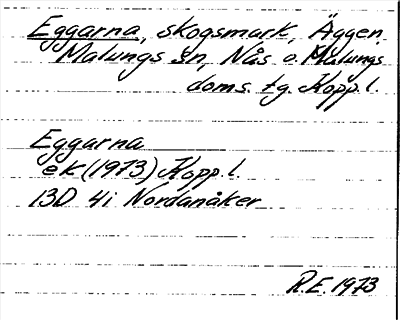 Eggarna, skogsmark, Äggen
Malungs sn, Nås o. Malungs
doms. tg. Kopp. l.
Eggarna
ek (1973) Kopp. l.
13D 4i Nordanåker
R.E. 1973